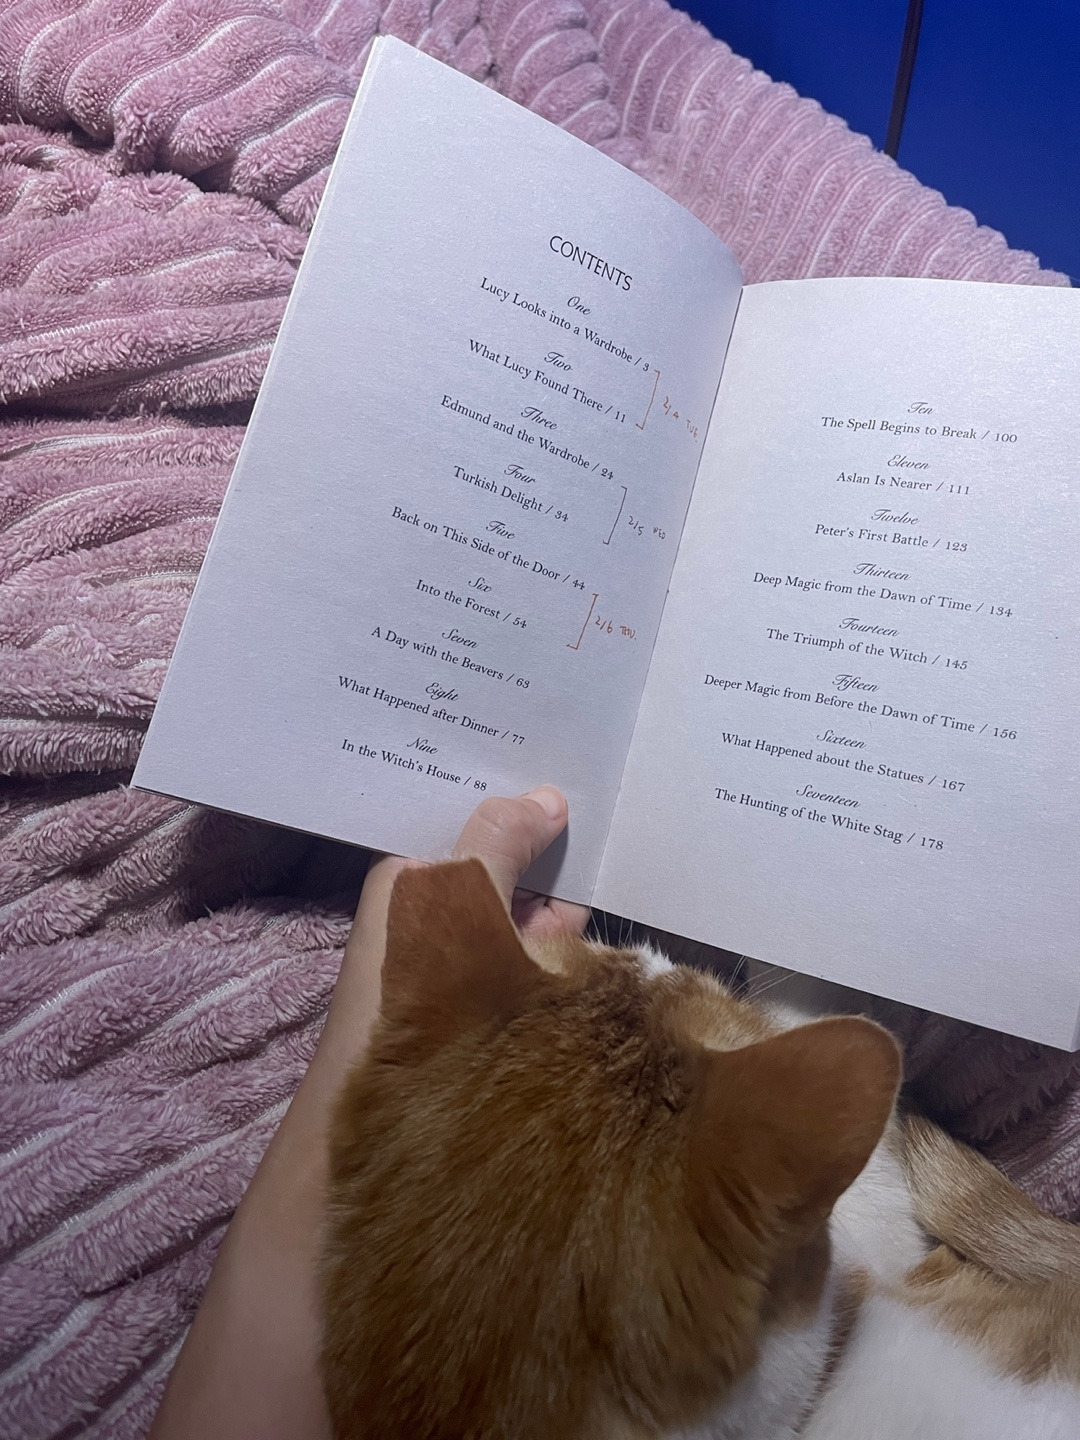 CONTENTS
One
Lucy Looks into a Wardrobe / 3
Two
What Lucy Found There / 11
2/4 TUE.
Three
Edmund and the Wardrobe / 24
Four
Turkish Delight / 34
2/5 WED
Five
Back on This Side of the Door / 44
Six
Into the Forest / 54
2/6 THU.
Seven
A Day with the Beavers / 63
Eight
What Happened after Dinner / 77
Nine
In the Witch's House / 88
Ten
The Spell Begins to Break / 100
Eleven
Aslan Is Nearer / 111
Twelve
Peter's First Battle / 123
Thirteen
Deep Magic from the Dawn of Time / 134
Fourteen
The Triumph of the Witch / 145
Fifteen
Deeper Magic from Before the Dawn of Time / 156
Sixteen
What Happened about the Statues / 167
Seventeen
The Hunting of the White Stag / 178